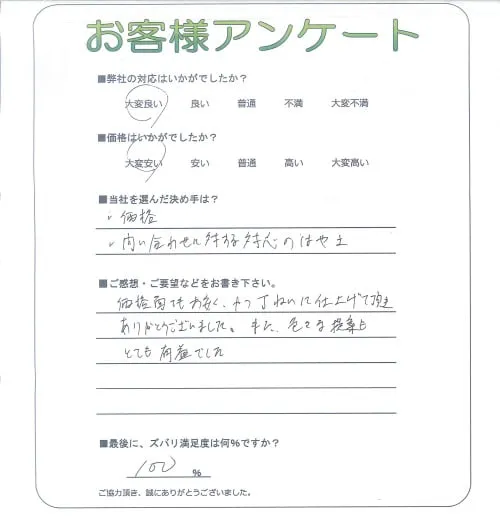 お客様アンケート
■弊社の対応はいかがでしたか？
大変良い 良い 普通 不満 大変不満
■価格はいかがでしたか？
大変安い 安い 普通 高い 大変高い
■当社を選んだ決め手は？
・価格
・問い合わせに対する対応のはやさ
■ご感想・ご要望などをお書き下さい。
価格面でもお安く、かつ丁ねいに仕上げて頂き
ありがとうございました。また、色々な提案も
とても有益でした
■最後に、ズバリ満足度は何％ですか？
100 ％
ご協力頂き、誠にありがとうございました。